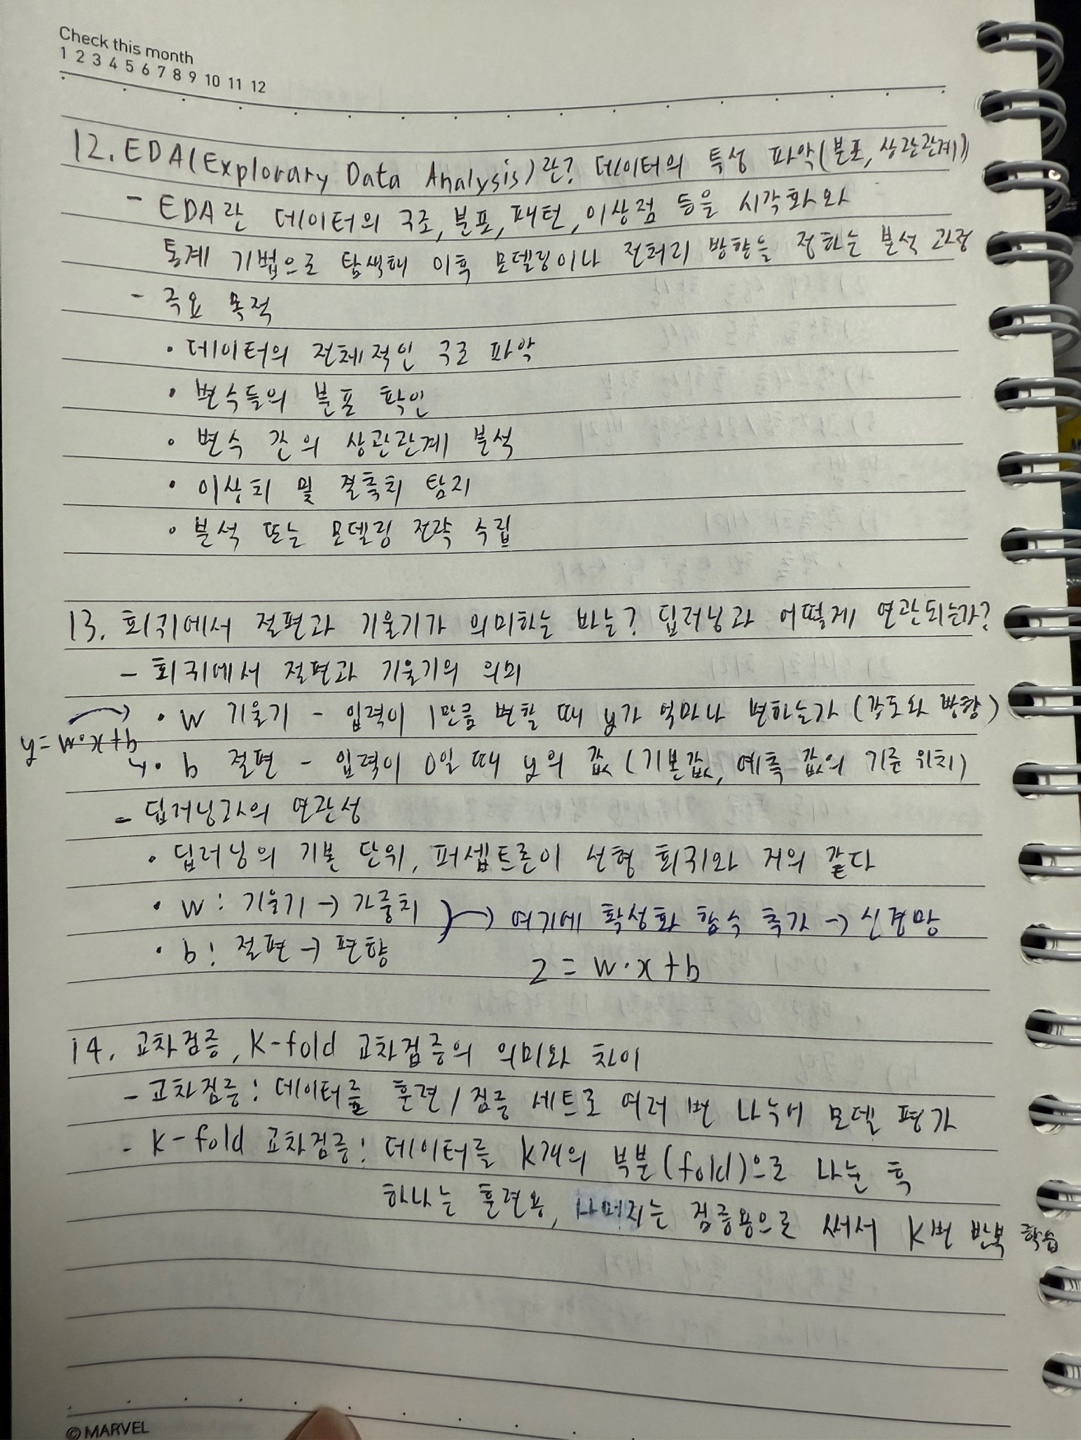 Check this month
1 2 3 4 5 6 7 8 9 10 11 12
12. EDA(Explorary Data Analysis)란? 데이터의 특성 파악(분포, 상관관계))
- EDA란 데이터의 구조, 분포, 패턴, 이상점 등을 시각화와
통계 기법으로 탐색해 이후 모델링이나 전처리 방향을 정하는 분석 과정
- 주요 목적
• 데이터의 전체적인 구조 파악
• 변수들의 분포 확인
• 변수 간의 상관관계 분석
• 이상치 및 결측치 탐지
• 분석 또는 모델링 전략 수립
13. 회귀에서 절편과 기울기가 의미하는 바는? 딥러닝과 어떻게 연관되는가?
- 회귀에서 절편과 기울기의 의미
• w 기울기 - 입력이 1만큼 변할 때 y가 얼마나 변하는가 (각도와 방향)
y = w·x+b
• b 절편 - 입력이 0일 때 y의 값 (기본값, 예측 값의 기준 위치)
- 딥러닝과의 연관성
• 딥러닝의 기본 단위, 퍼셉트론이 선형 회귀와 거의 같다
• w : 기울기 → 가중치 → 여기에 활성화 함수 추가 → 신경망
• b : 절편 → 편향
z = w·x+b
14. 교차검증, K-fold 교차검증의 의미와 차이
- 교차검증 : 데이터를 훈련/검증 세트로 여러 번 나누어 모델 평가
- K-fold 교차검증 : 데이터를 K개의 부분(fold)으로 나눈 후
하나는 훈련용, 나머지는 검증용으로 써서 K번 반복 학습
© MARVEL